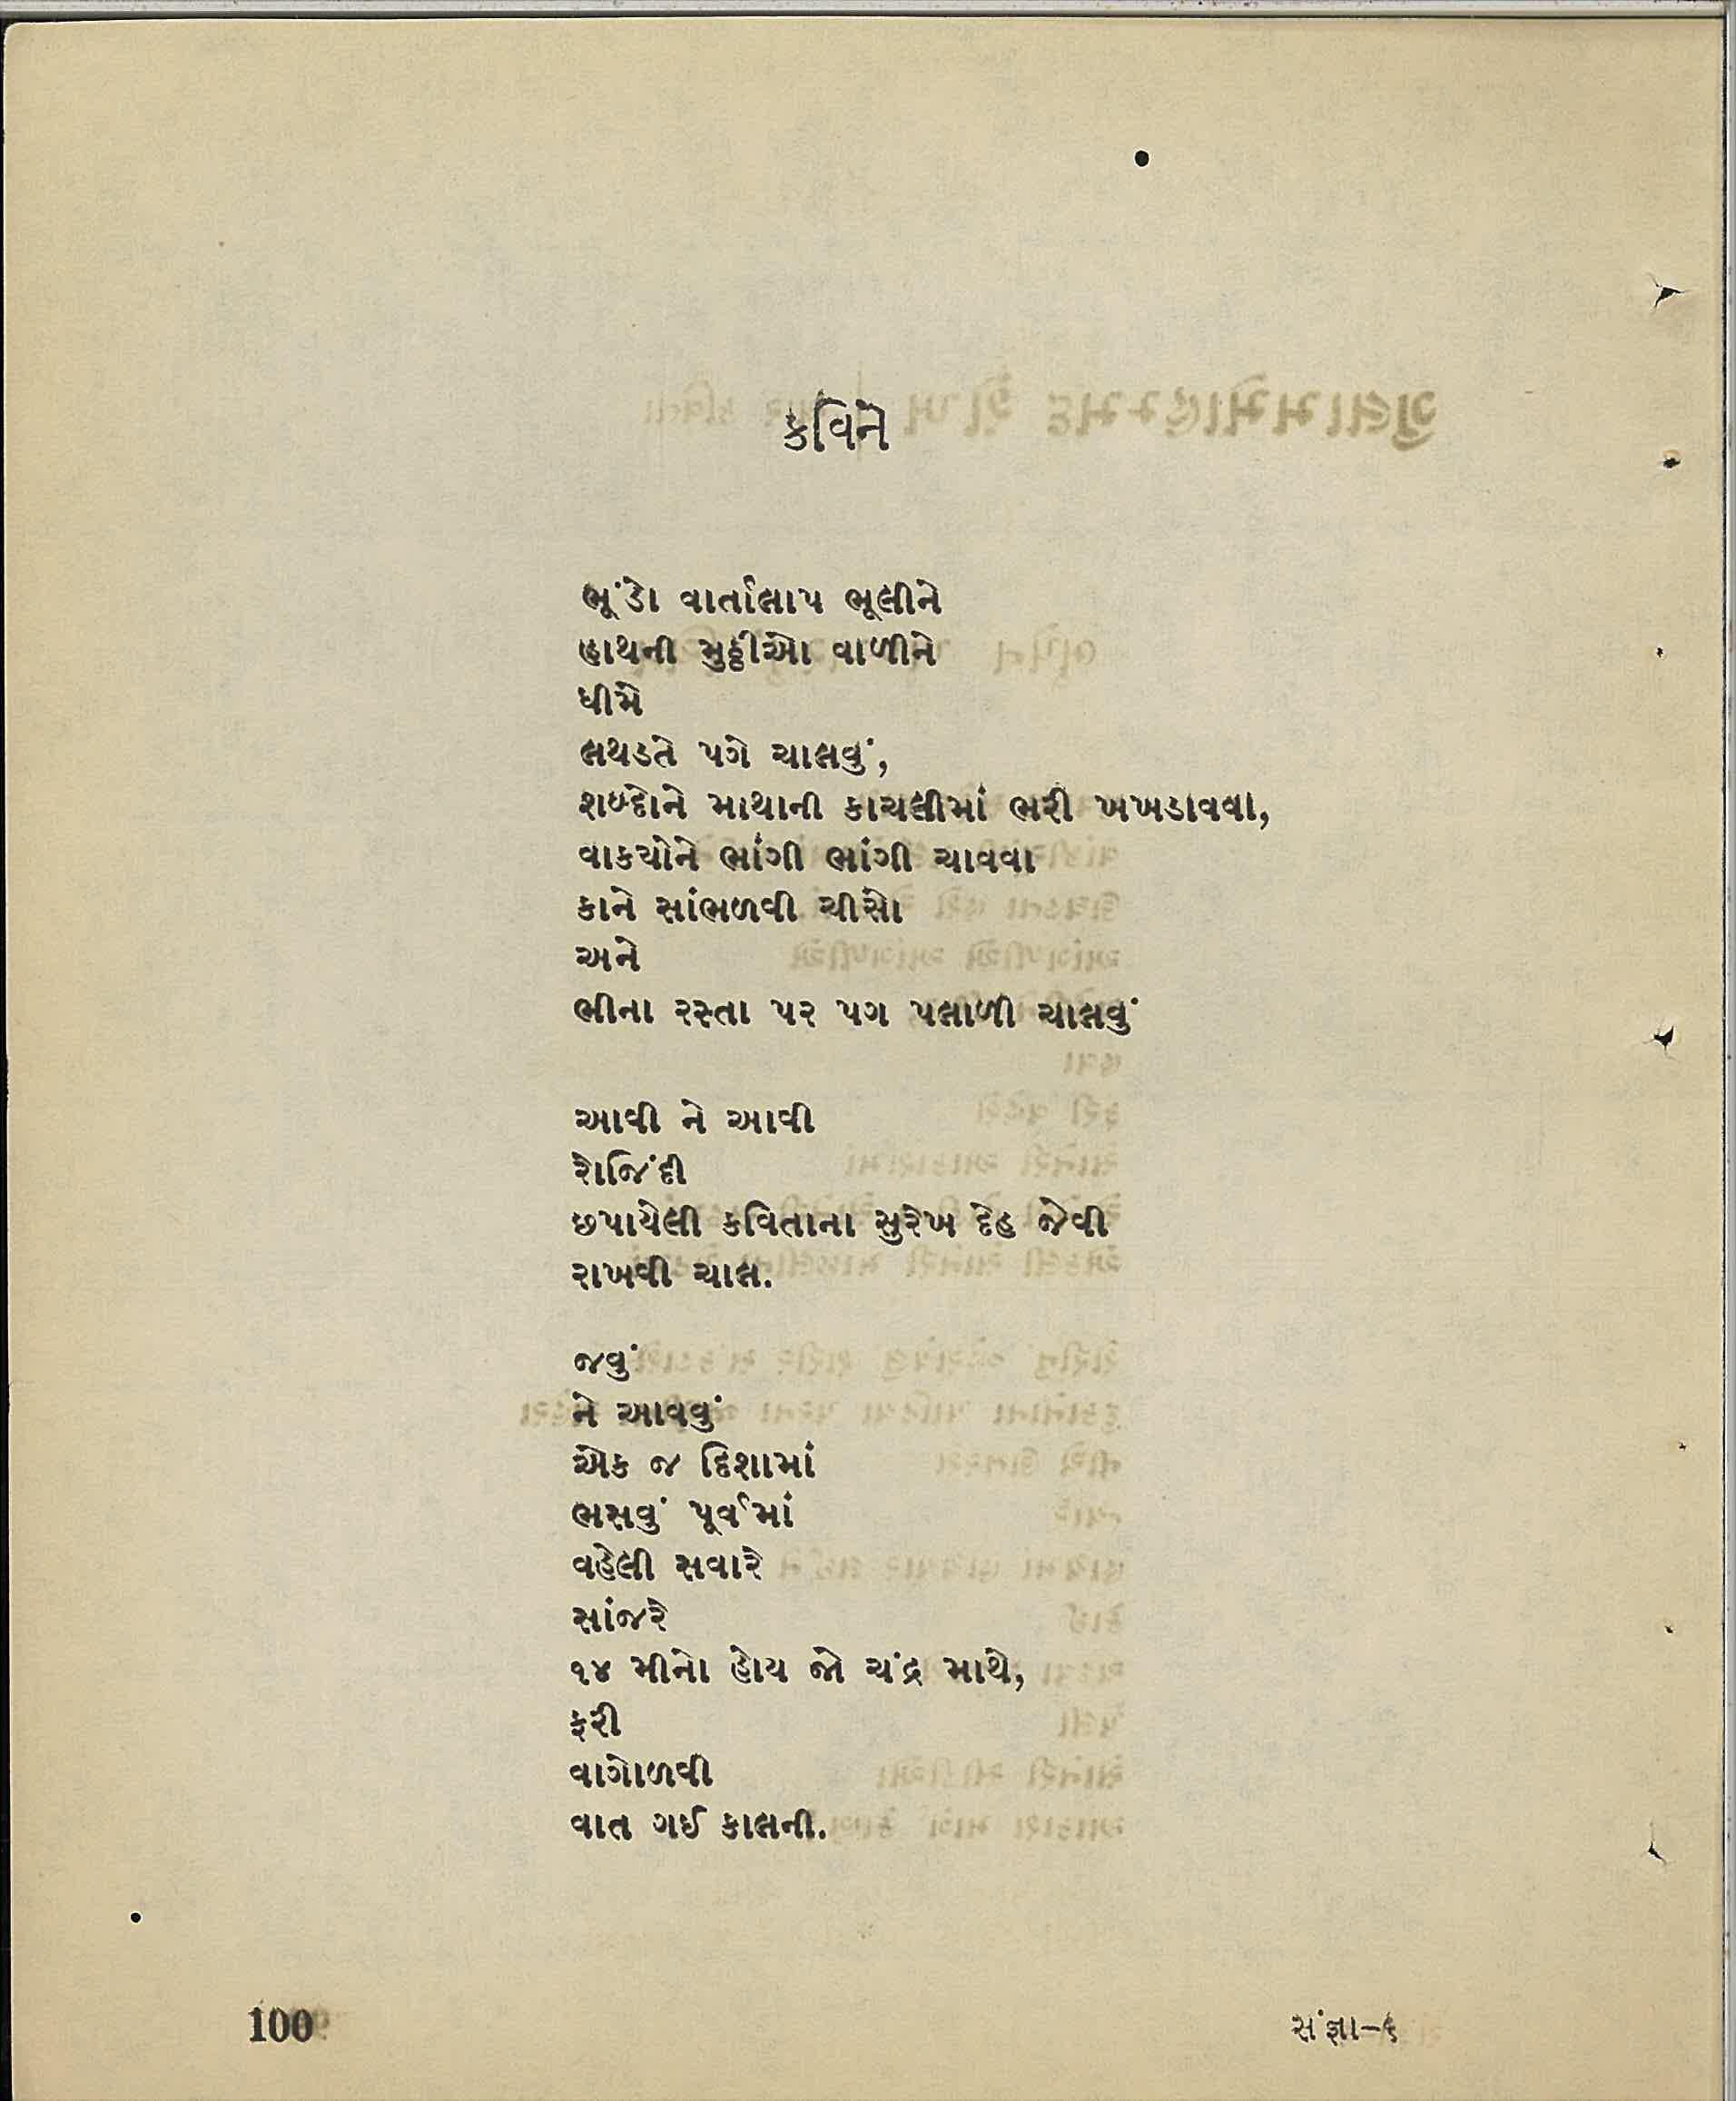 કવિને
ભૂંડો વાર્તાલાપ ભૂલીને
હાથની મુઠ્ઠીઓ વાળીને
ધીમે
લથડતે પગે ચાલવું,
શબ્દોને માથાની કાચલીમાં ભરી ખખડાવવા,
વાકયોને ભાંગી ભાંગી ચાવવા
કાને સાંભળવી ચીસો
અને
ભીના રસ્તા પર પગ પલાળી ચાલવું
આવી ને આવી
રોજિંદી
છપાયેલી કવિતાના સુરેખ દેહ જેવી
રાખવી ચાલ.
જવું
ને આવવું
એક જ દિશામાં
ભસવું પૂર્વમાં
વહેલી સવારે
સાંજરે
૧૪ મીનો હોય જો ચંદ્ર માથે,
ફરી
વાગોળવી
વાત ગઈ કાલની.
100
સંજ્ઞા-૯